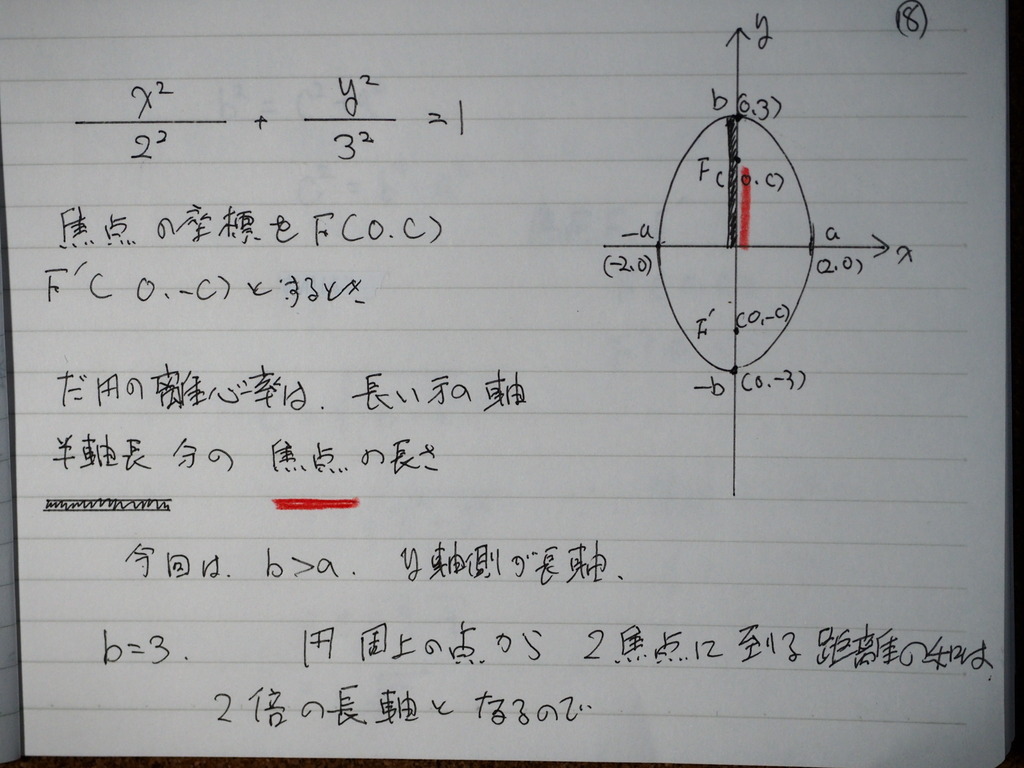 (18)
x²/2² + y²/3² = 1
y
b (0.3)
F (0.C)
-a
a
(-2.0)
(2.0)
x
F' (0.-C)
-b (0.-3)
焦点の座標をF(0.C)
F'(0.-C)とするとき
だ円の離心率は. 長い方の軸
半軸長分の 焦点の長さ
今回は. b>a. y軸側が長軸.
b=3. 円周上の点から 2焦点に至る距離の和は
2倍の長軸となるので